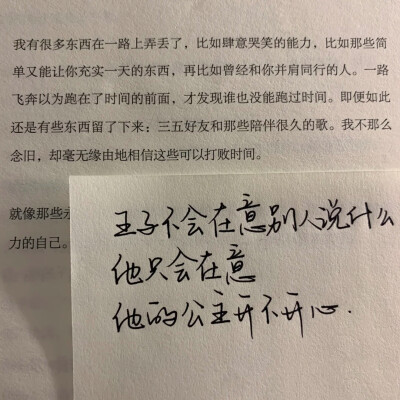 我有很多东西在一路上弄丢了，比如肆意哭笑的能力，比如那些简
单又能让你充实一天的东西，再比如曾经和你并肩同行的人。一路
飞奔以为跑在了时间的前面，才发现谁也没能跑过时间。即便如此
还是有些东西留了下来：三五好友和那些陪伴很久的歌。我不那么
念旧，却毫无缘由地相信这些可以打败时间。
就像那些
力的自己。
王子不会在意别人说什么
他只会在意
他的公主开不开心.